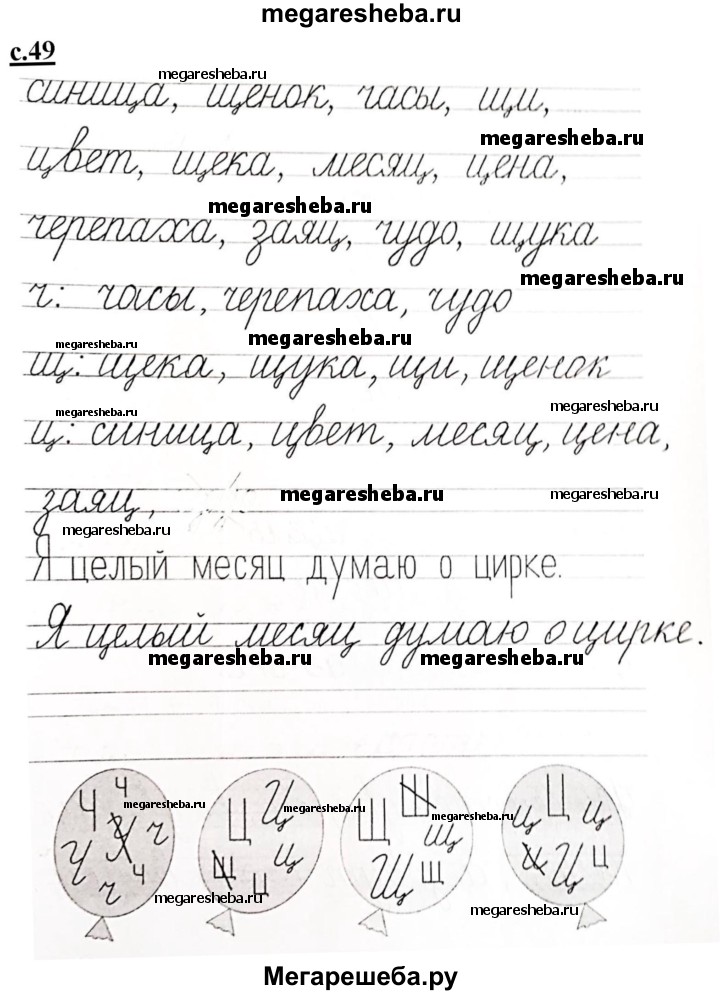 megaresheba.ru
с.49
megaresheba.ru
синица, щенок, часы, щи,
megaresheba.ru
цвет, щека, месяц, цена,
megaresheba.ru
черепаха, заяц, чудо, щука
megaresheba.ru
ч: часы, черепаха, чудо
megaresheba.ru megaresheba.ru
щ: щека, щука, щи, щенок
megaresheba.ru megaresheba.ru
ц: синица, цвет, месяц, цена,
заяц,
megaresheba.ru megaresheba.ru
megaresheba.ru
Я целый месяц думаю о цирке.
Я целый месяц думаю о цирке.
megaresheba.ru megaresheba.ru
Ч ч Ц Ц Щ Ш Ц ц ц
megaresheba.ru megaresheba.ru megaresheba.ru
Ч У ч щ ц ц Щ щ щ и Ц ц
ч ч
megaresheba.ru megaresheba.ru
Мегарешеба.ру